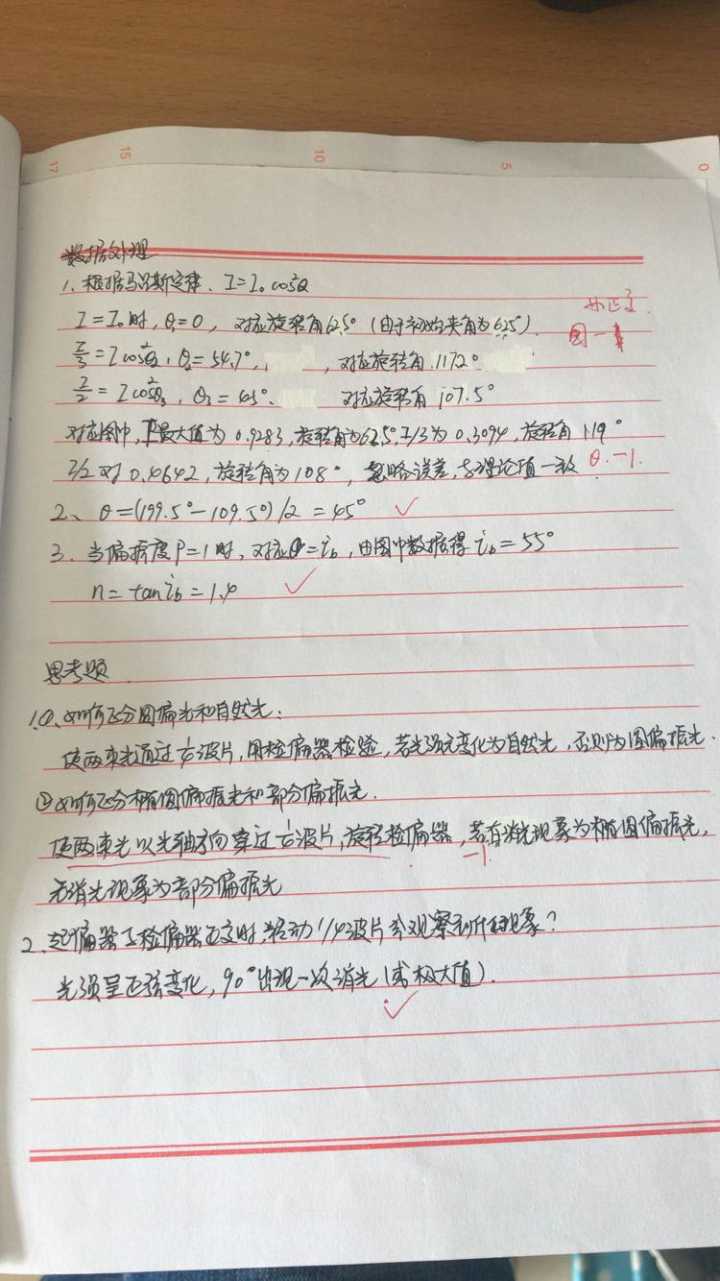 17 15 10 5 0
数据处理
1. 根据马吕斯定律. I=I₀cos²θ
I=I₀时, θ₁=0, 对应旋转角62.5° (由于初始夹角为62.5°).
I/3=Icos²θ₂, θ₂=54.7°, 对应旋转角.117.2°
图-1
I/2=Icos²θ₃, θ₃=45°. 对应旋转角 107.5°
对应图中, I最大值为 0.9283, 旋转角为62.5°, I/3为 0.3094, 旋转角 119°
I/2对 0.4642, 旋转角为 108°, 忽略误差, 与理论值一致 θ.-1.
2、 θ=(199.5°-109.5°)/2=45° ✓
3. 当偏振度P=1时, 对应θ=i_b, 由图中数据得 i_b=55°
n=tani_b=1.4 ✓
思考题
1.①.如何区分圆偏光和自然光:
使两束光通过λ/4波片, 用检偏器检验, 若光强无变化为自然光, 否则为圆偏振光.
②如何区分椭圆偏振光和部分偏振光.
使两束光以光轴方向穿过λ/4波片, 旋转检偏器, 若有消光现象为椭圆偏振光,
-1
无消光现象为部分偏振光
2、起偏器与检偏器正交时, 转动1/4波片会观察到什么现象?
光强呈正弦变化, 90°出现一次消光(或极大值).
✓